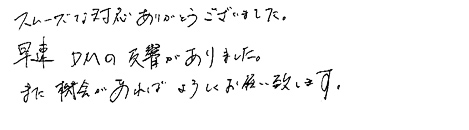 スムーズな対応ありがとうございました。
早速 DMの反響がありました。
また機会があればよろしくお願い致します。